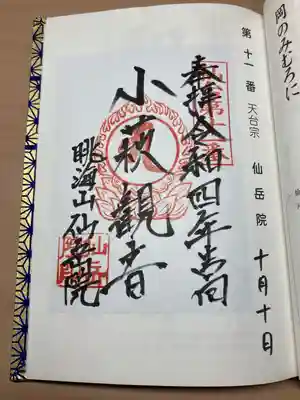 岡のみむろに
第十一番 天台宗 仙岳院 十月十日
奉拝 令和四年
小萩観音
眺海山仙岳院